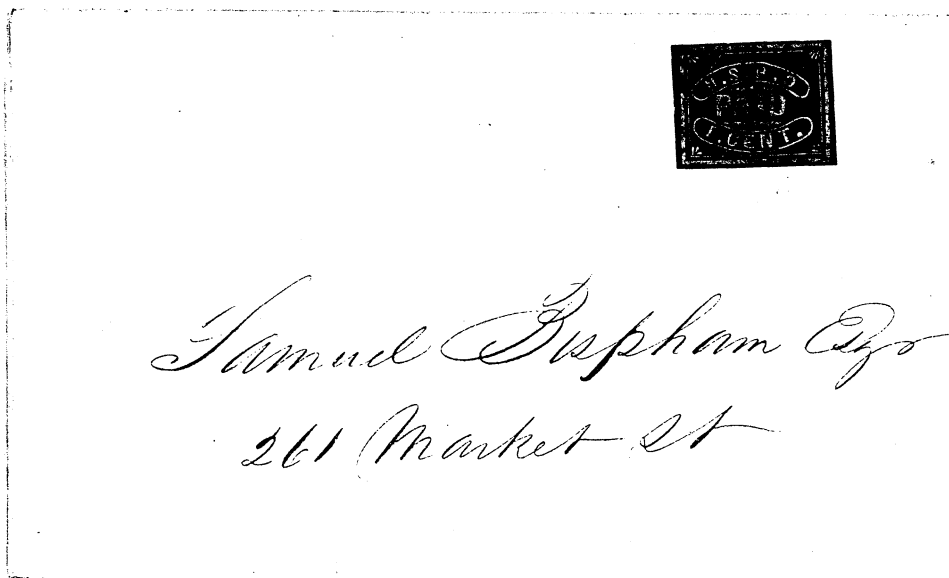 U.S.P.O
PAID
1.CENT.
Samuel Bispham Esqr
261 Market St